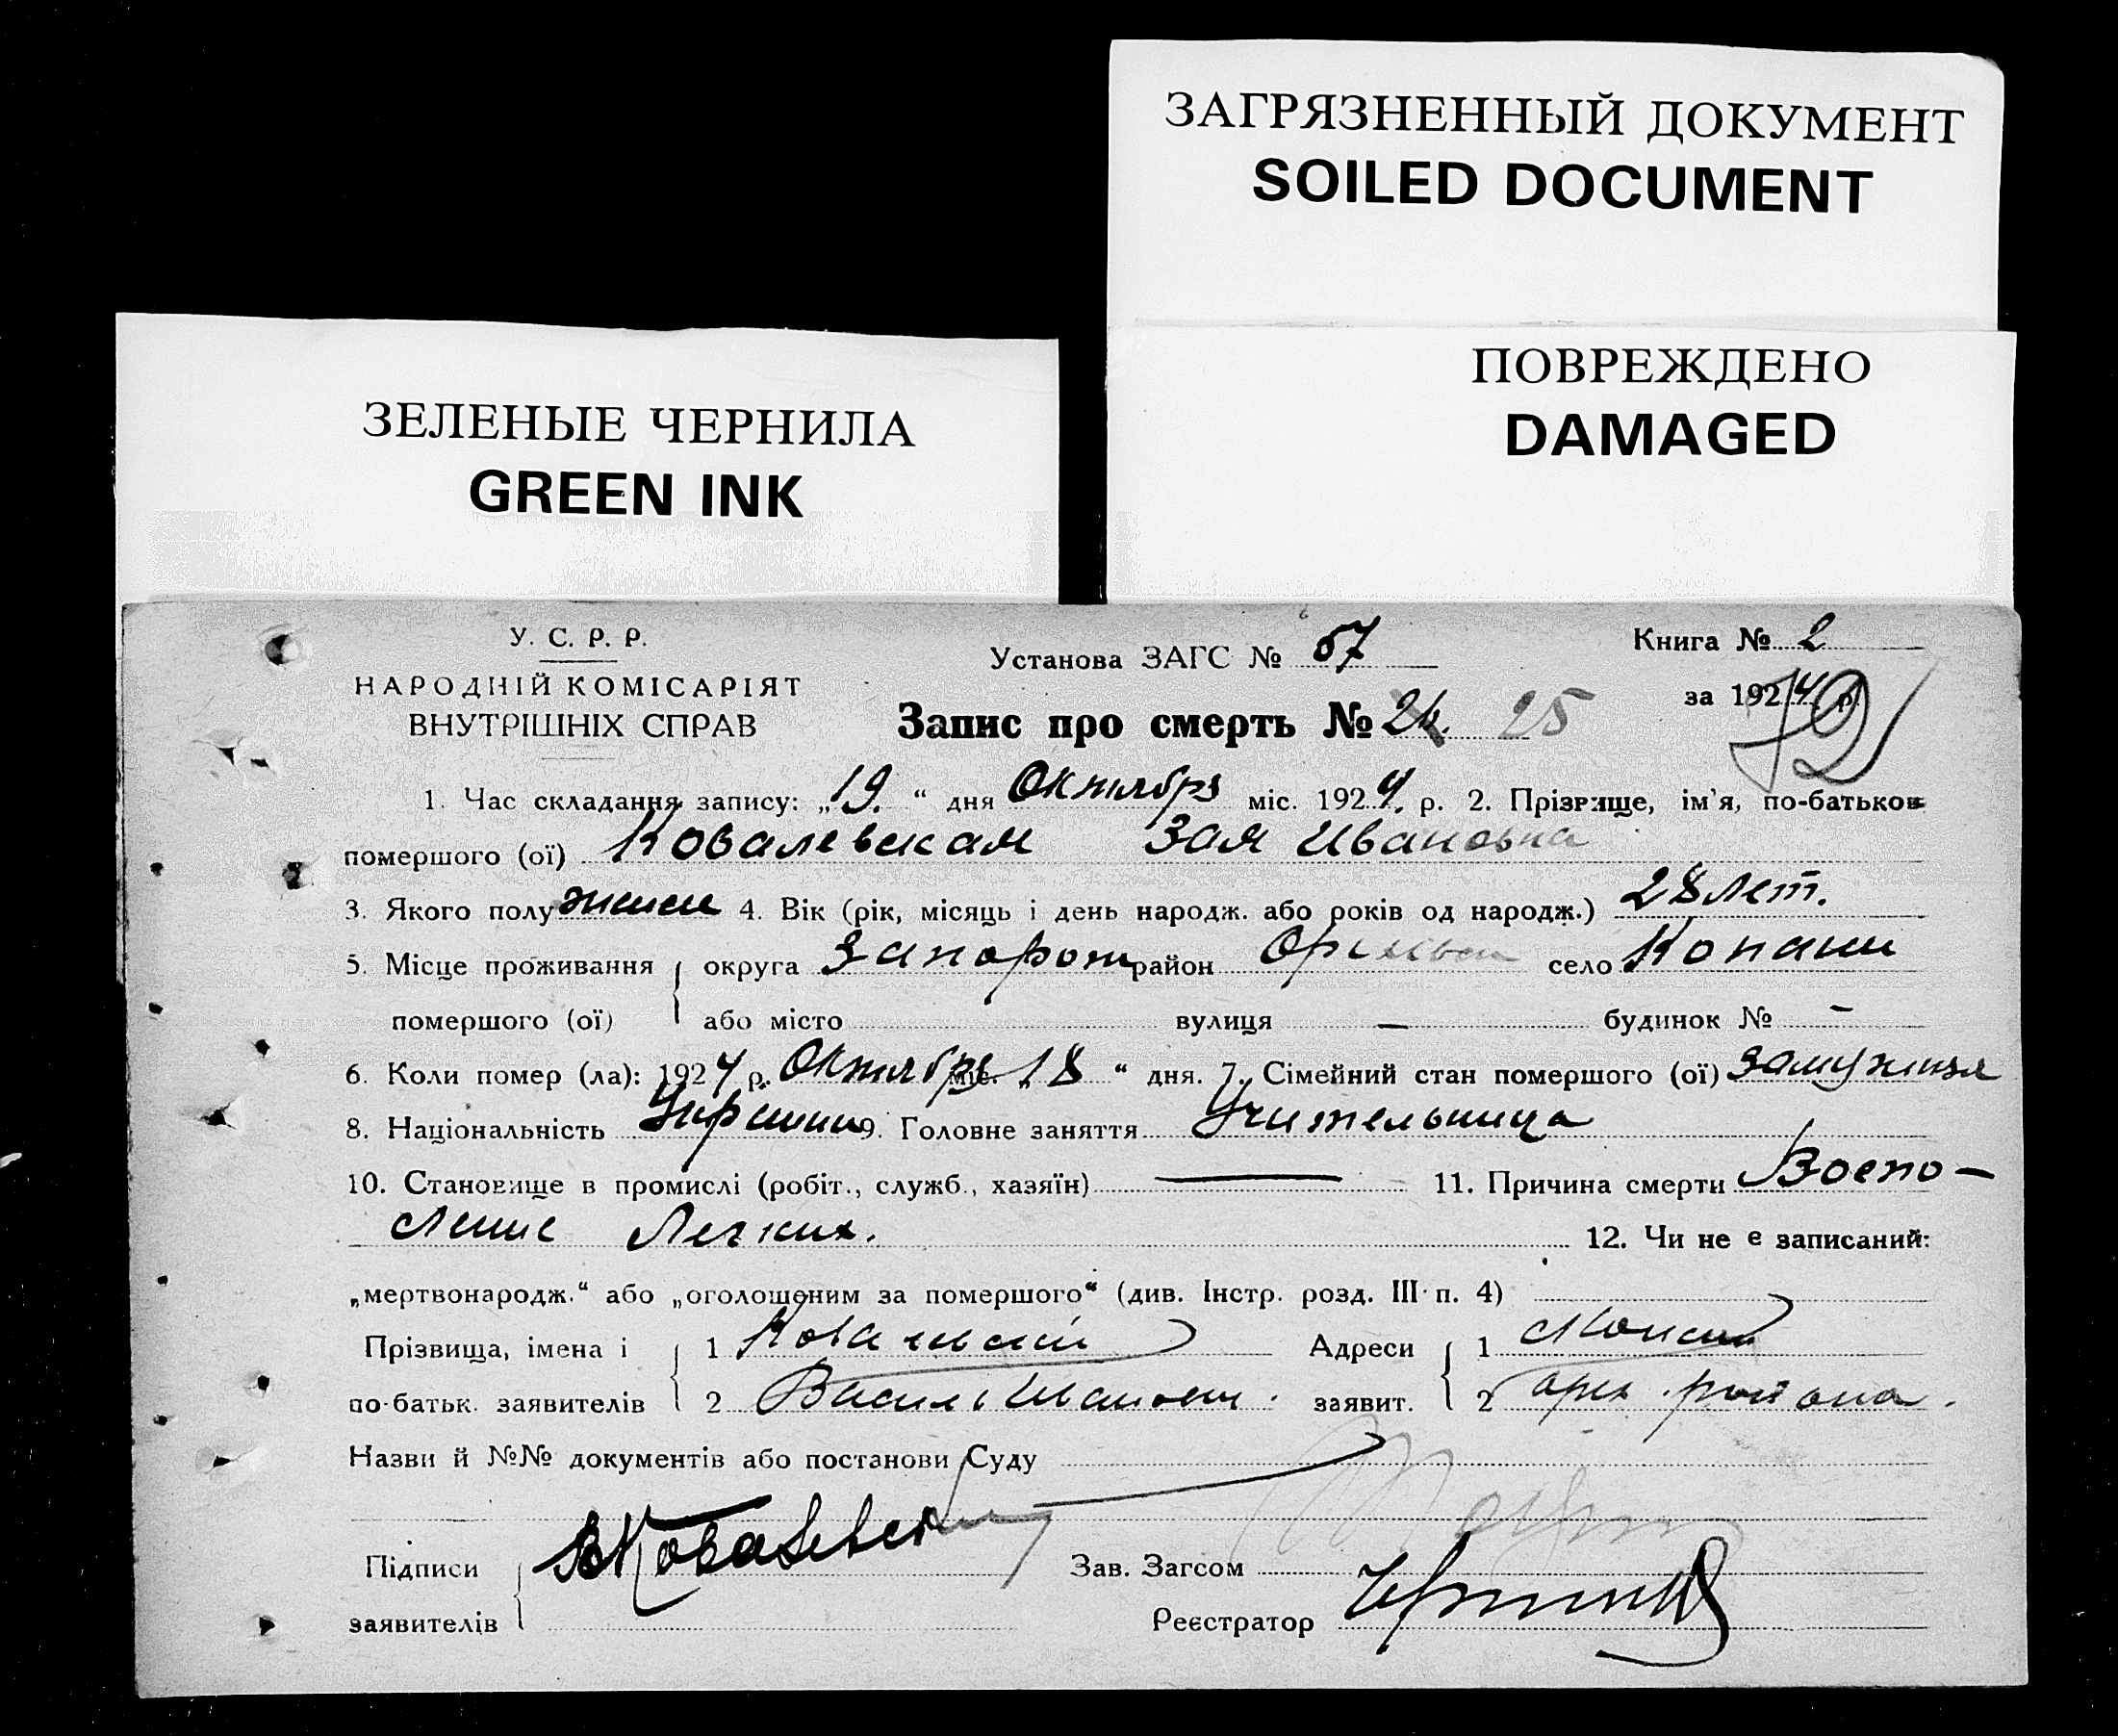 ЗАГРЯЗНЕННЫЙ ДОКУМЕНТ
SOILED DOCUMENT
ПОВРЕЖДЕНО
DAMAGED
ЗЕЛЕНЫЕ ЧЕРНИЛА
GREEN INK
У. С. Р. Р.
НАРОДНІЙ КОМІСАРІЯТ
ВНУТРІШНІХ СПРАВ
Установа ЗАГС № 57
Книга № 2
за 1924 р.
Запис про смерть № 24. 25
1. Час складання запису: „19.“ дня Октября міс. 1924. р. 2. Прізвище, ім'я, по-батькові
помершого (ої) Ковалевская Зоя Ивановна
3. Якого полу женск 4. Вік (рік, місяць і день народж. або років од народж.) 28 лет.
5. Місце проживання округа Запорож район село Копани
помершого (ої) або місто вулиця — будинок № –
6. Коли помер (ла): 1924 р. Октябрь міс. „18“ дня. 7. Сімейний стан помершого (ої) замужняя
8. Національність 9. Головне заняття Учительница
10. Становище в промислі (робіт., служб., хазяїн) — 11. Причина смерти Воспо-
ление Легких. 12. Чи не є записаний:
„мертвонародж.“ або „оголошеним за помершого“ (див. Інстр. розд. III п. 4)
Прізвища, імена і 1 Адреси 1
по-батьк. заявителів 2 заявит. 2 района.
Назви й №№ документів або постанови Суду
Підписи Зав. Загсом
заявителів Реєстратор